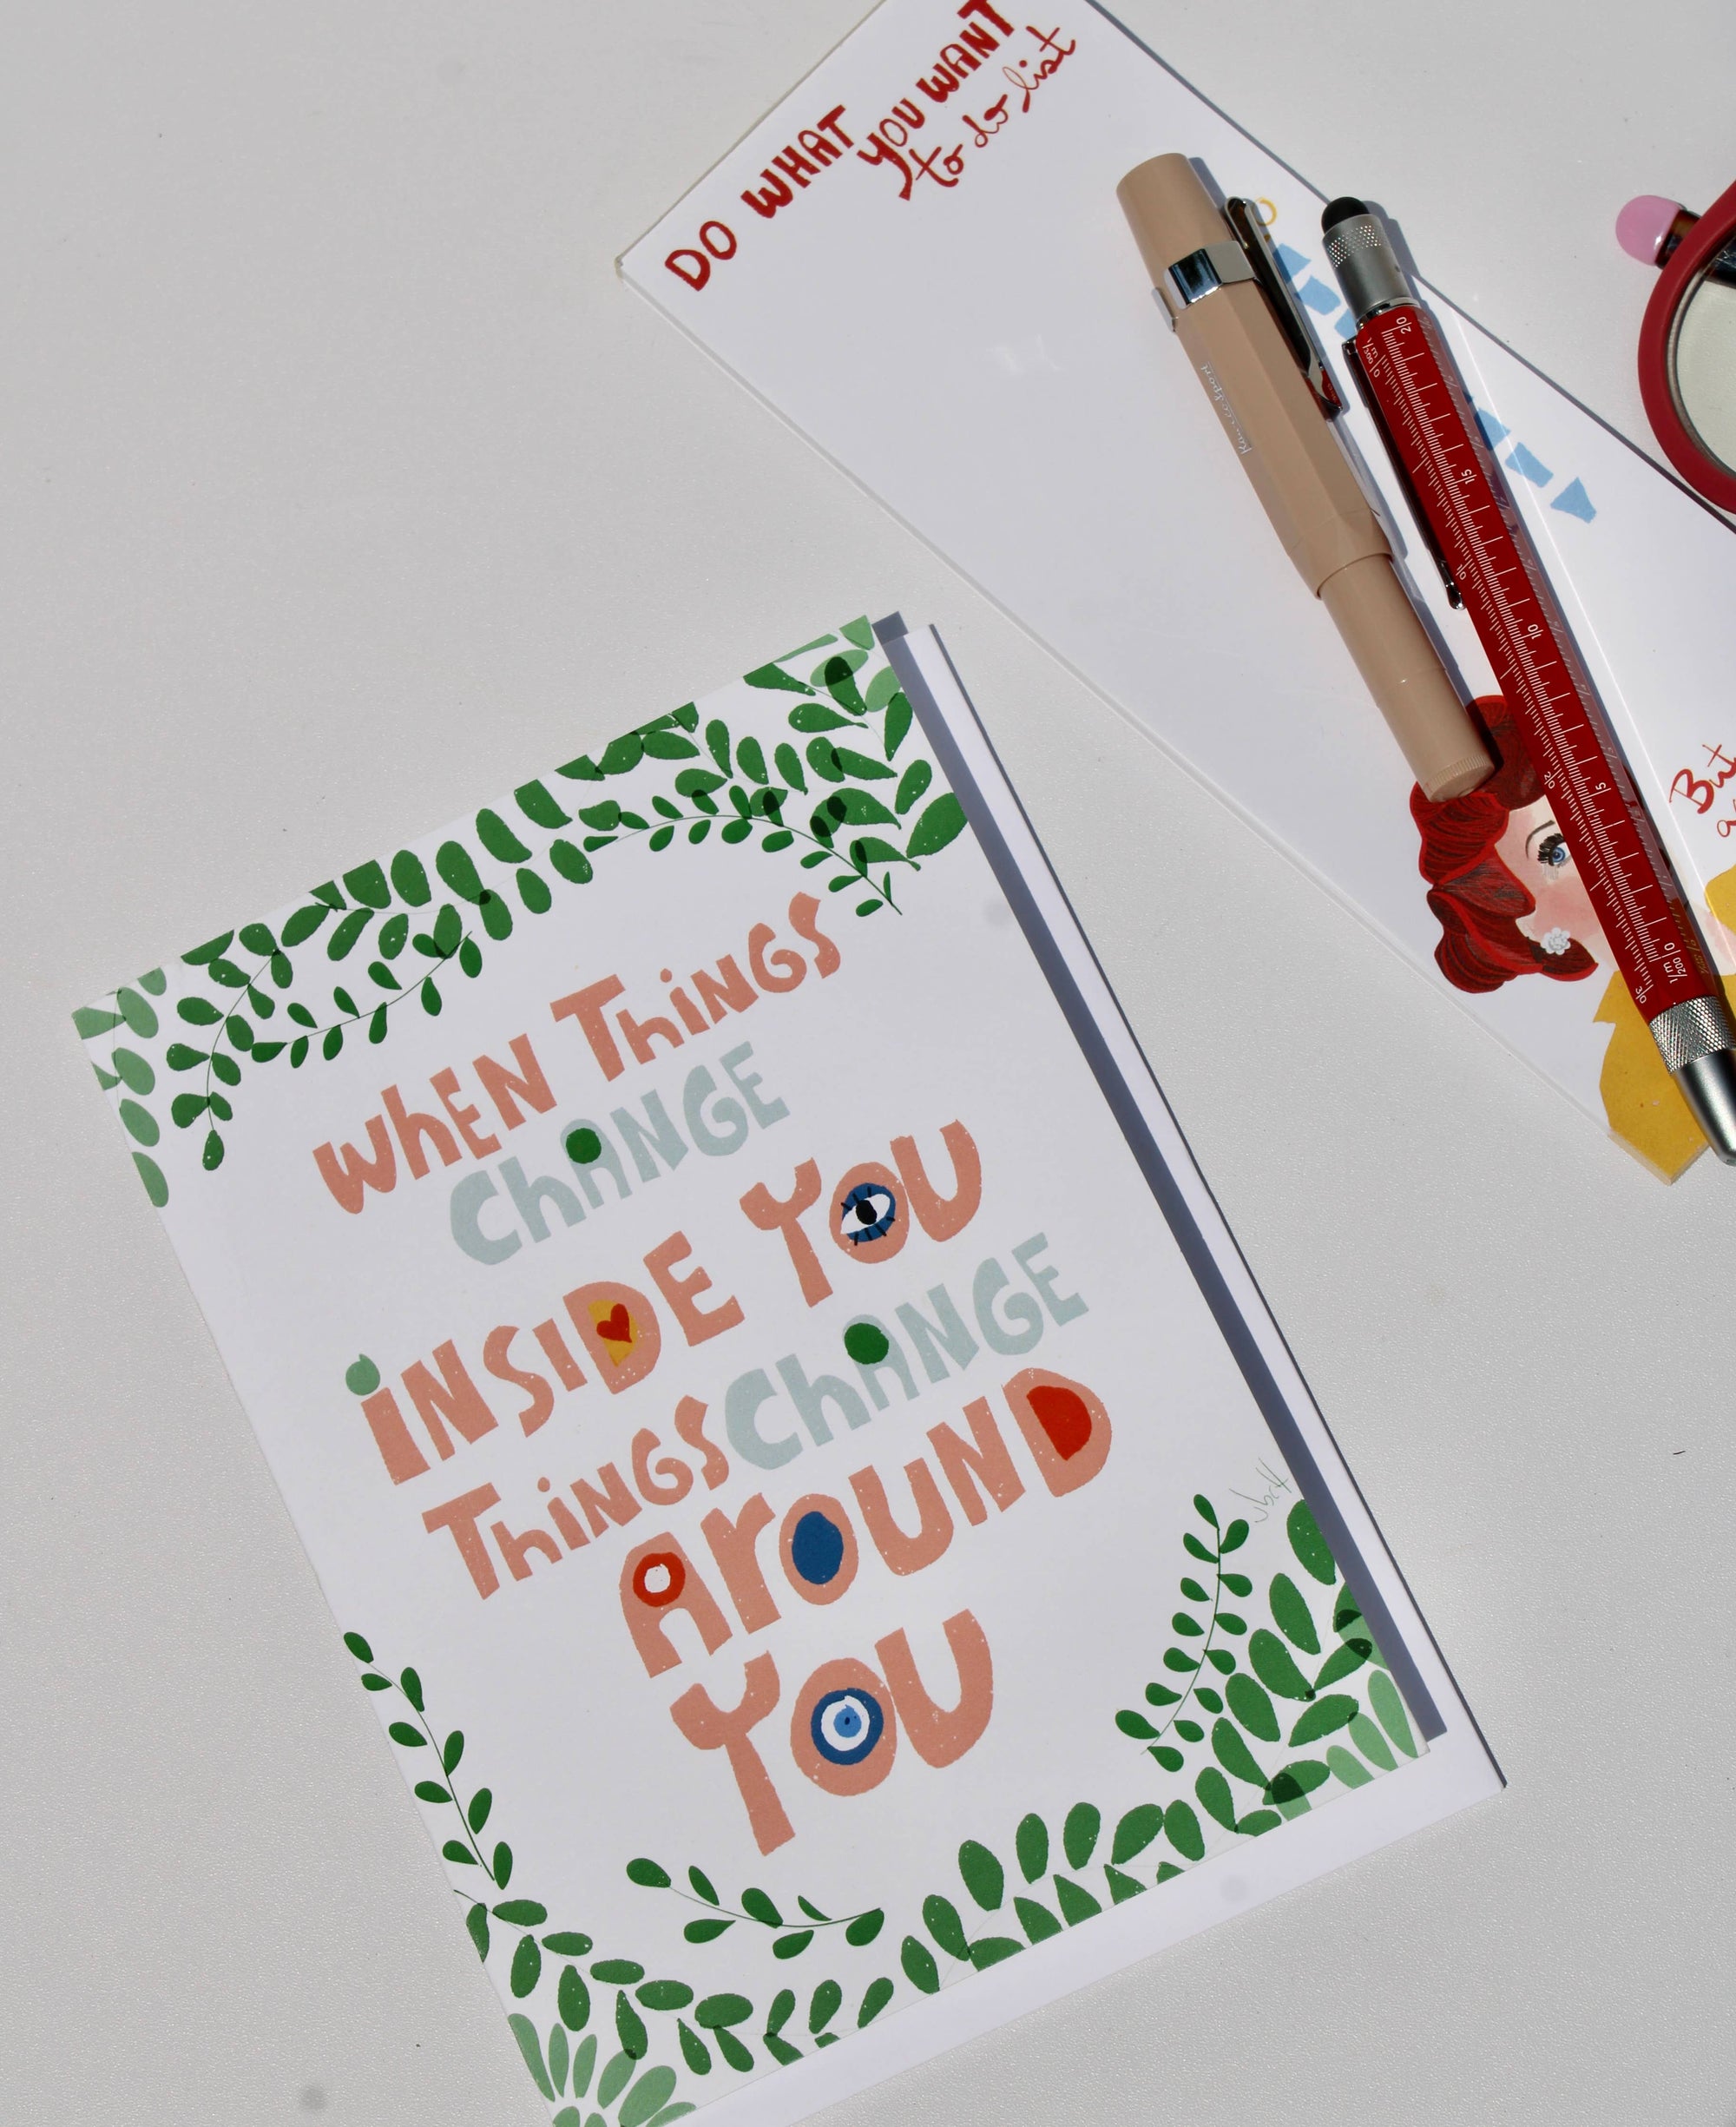 DO WHAT YOU WANT
to do list
Kaweco Sport
But
WhEN ThINGS
ChANGE
iNSIDE YOU
ThiNGS ChANGE
ArOUND
YOU